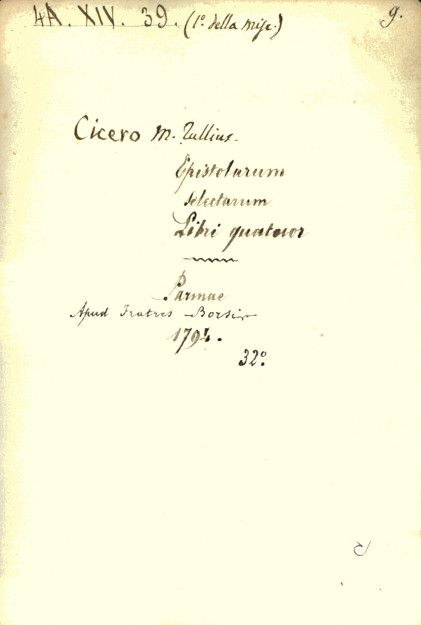 4A. XIV. 39. (1º. della misc.) 9.
Cicero M. Tullius.
Epistolarum
selectarum
Libri quatuor
Parmae
Apud Fratres Borsi
179
32º